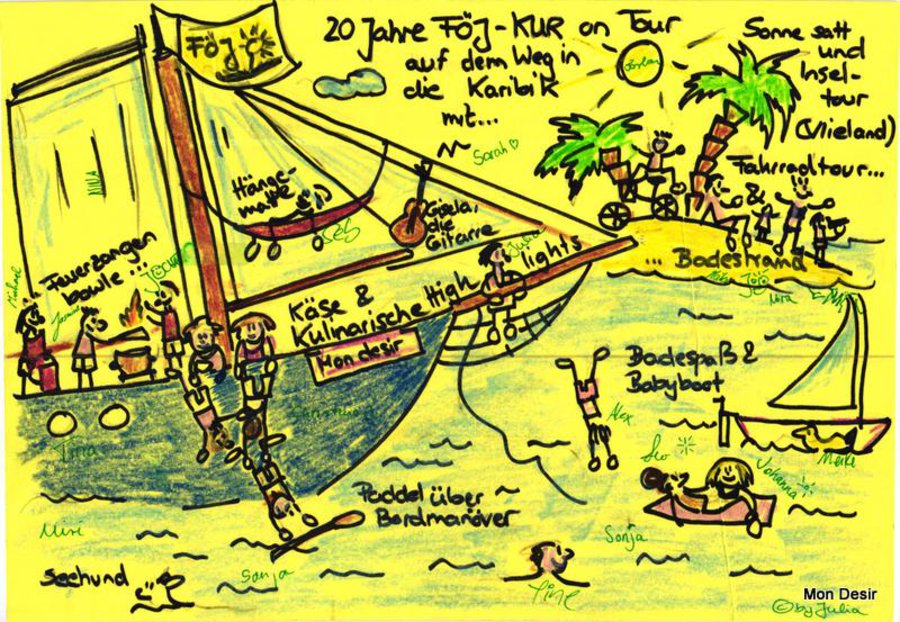 FÖJ
20 Jahre FÖJ-KUR on Tour
auf dem Weg in
die Karibik
mit...
Sonne satt
und
Insel-
tour
(Vlieland)
Fahrradtour...
&
... Badestrand
Sarah
Hänge-
matte
Gisela,
die
Gitarre
NINA
Feuerzangen
bowle...
Michael
Julia
Käse &
Kulinarische High lights
Mon desir
Badespaß &
Babyboot
Alex
Leo
Johanna
Meike
Sonja
Tine
Paddel über
Bordmanöver
Miri
Seehund
Sonja
Mon Desir
© by Julia